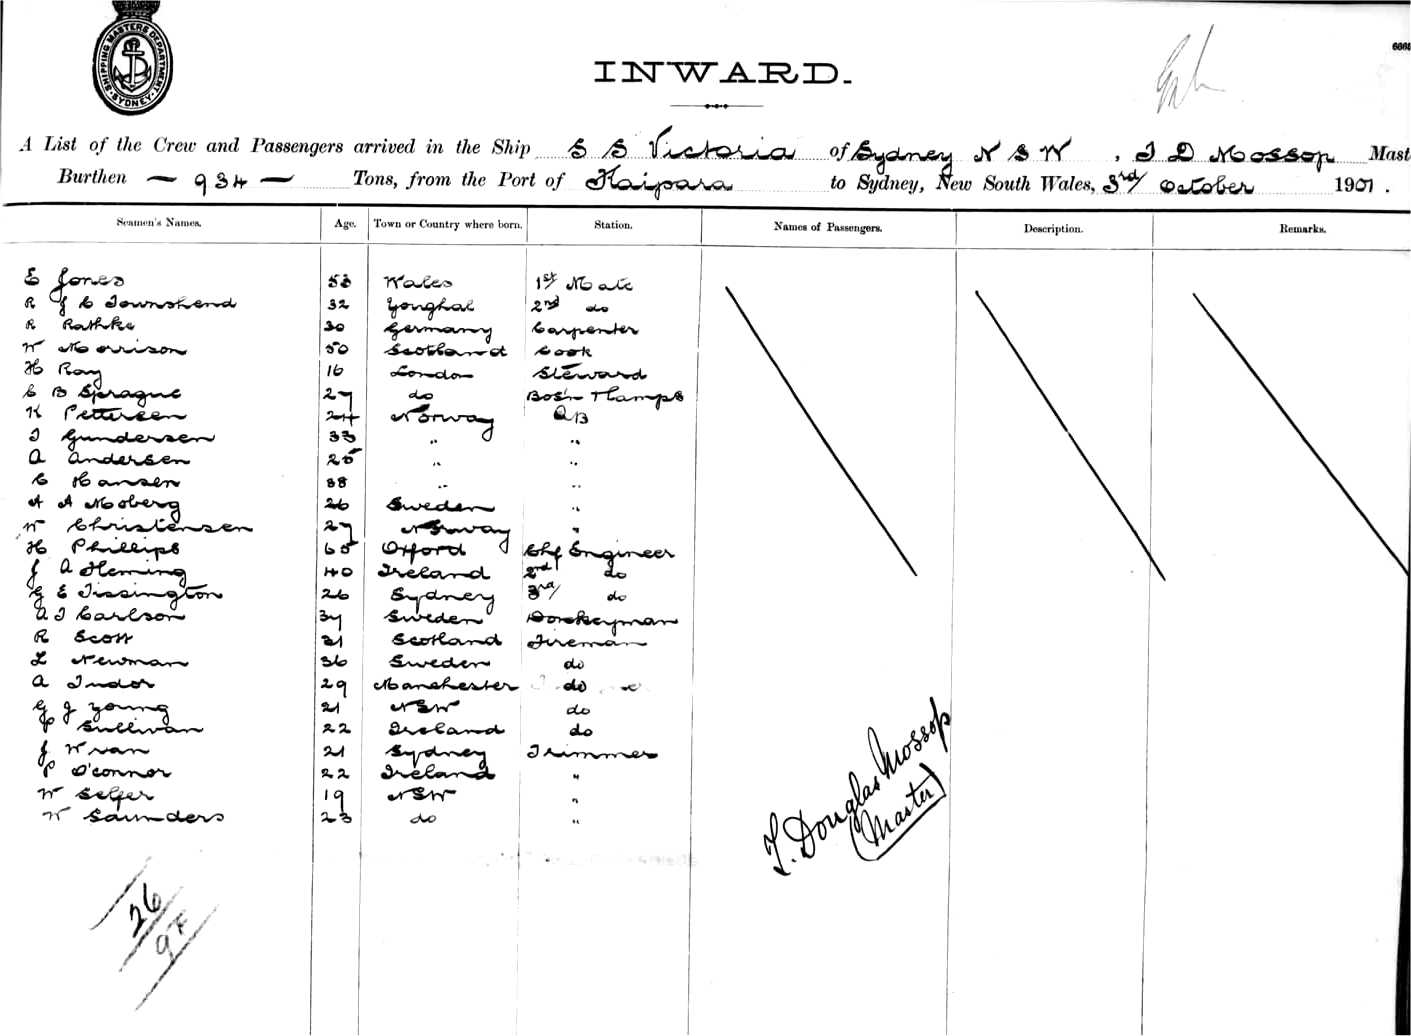 SHIPPING MASTERS DEPARTMENT
SYDNEY
INWARD.
A List of the Crew and Passengers arrived in the Ship S S Victoria of Sydney N S W , T D Mossop Mast
Burthen — 934 — Tons, from the Port of Kaipara to Sydney, New South Wales, 3rd/ October 1901.
Seamen's Names. Age. Town or Country where born. Station. Names of Passengers. Description. Remarks.
E Jones 53 Wales 1st Mate
R J C Townshend 32 Youghal 2nd do
R Rathke 30 Germany Carpenter
W Morrison 50 Scotland Cook
H Ray 16 London Steward
C B Sprague 27 do Bosn & Lamps
K Pettersen 24 Norway AB
T Gundersen 33 " "
A Andersen 25 " "
C Hansen 38 " "
A A Moberg 26 Sweden "
W Christensen 27 Norway "
H Phillips 65 Oxford Chf Engineer
J A Fleming 40 Ireland 2nd do
G E Tissington 26 Sydney 3rd/ do
A T Carlson 37 Sweden Donkeyman
R Scott 31 Scotland Fireman
L Newman 36 Sweden do
A Tudor 29 Manchester do
G J Young 21 NSW do
P Sullivan 22 Ireland do
J W 21 Sydney Trimmer
P O'Connor 22 Ireland "
W Selfer 19 NSW "
W Saunders 23 do "
T. Douglas Mossop
(Master)
26